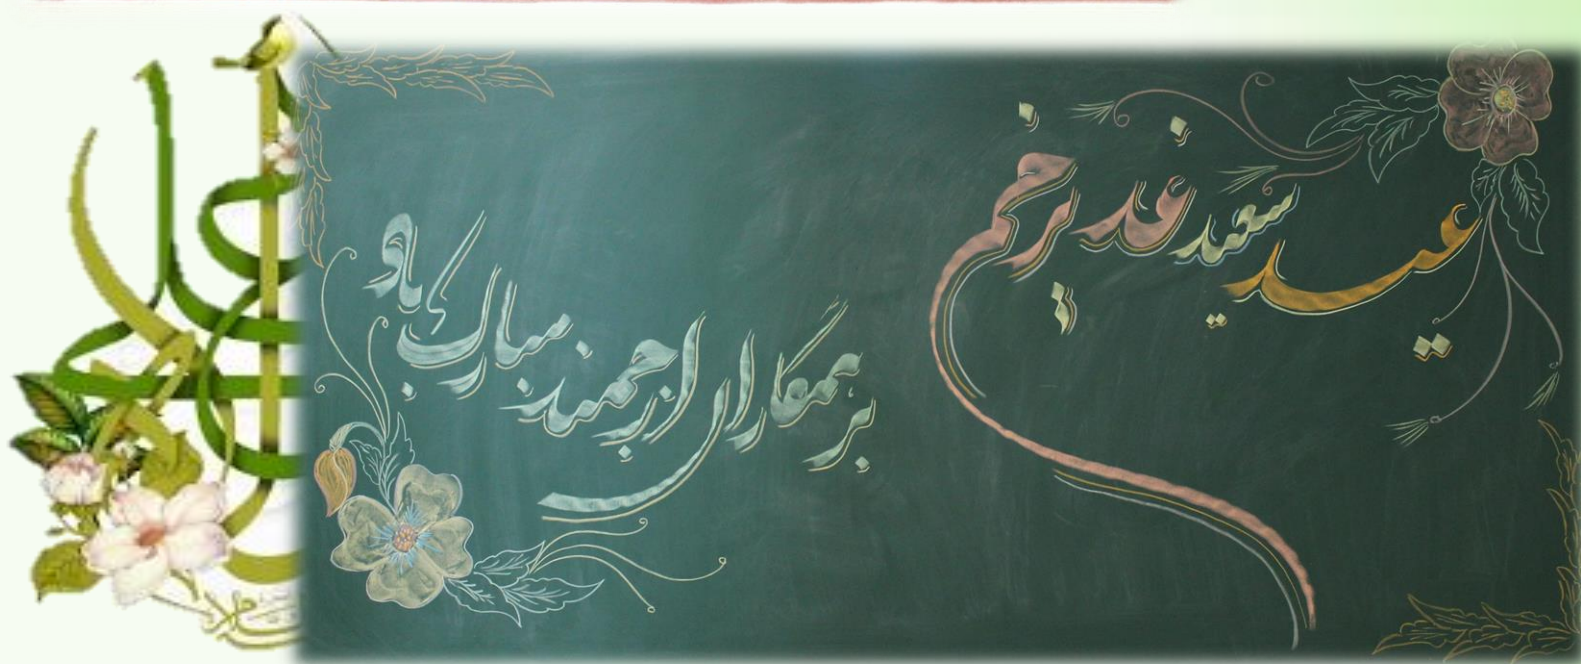 عید سعید غدیر خم
بر همکاران ارجمند مبارک باد